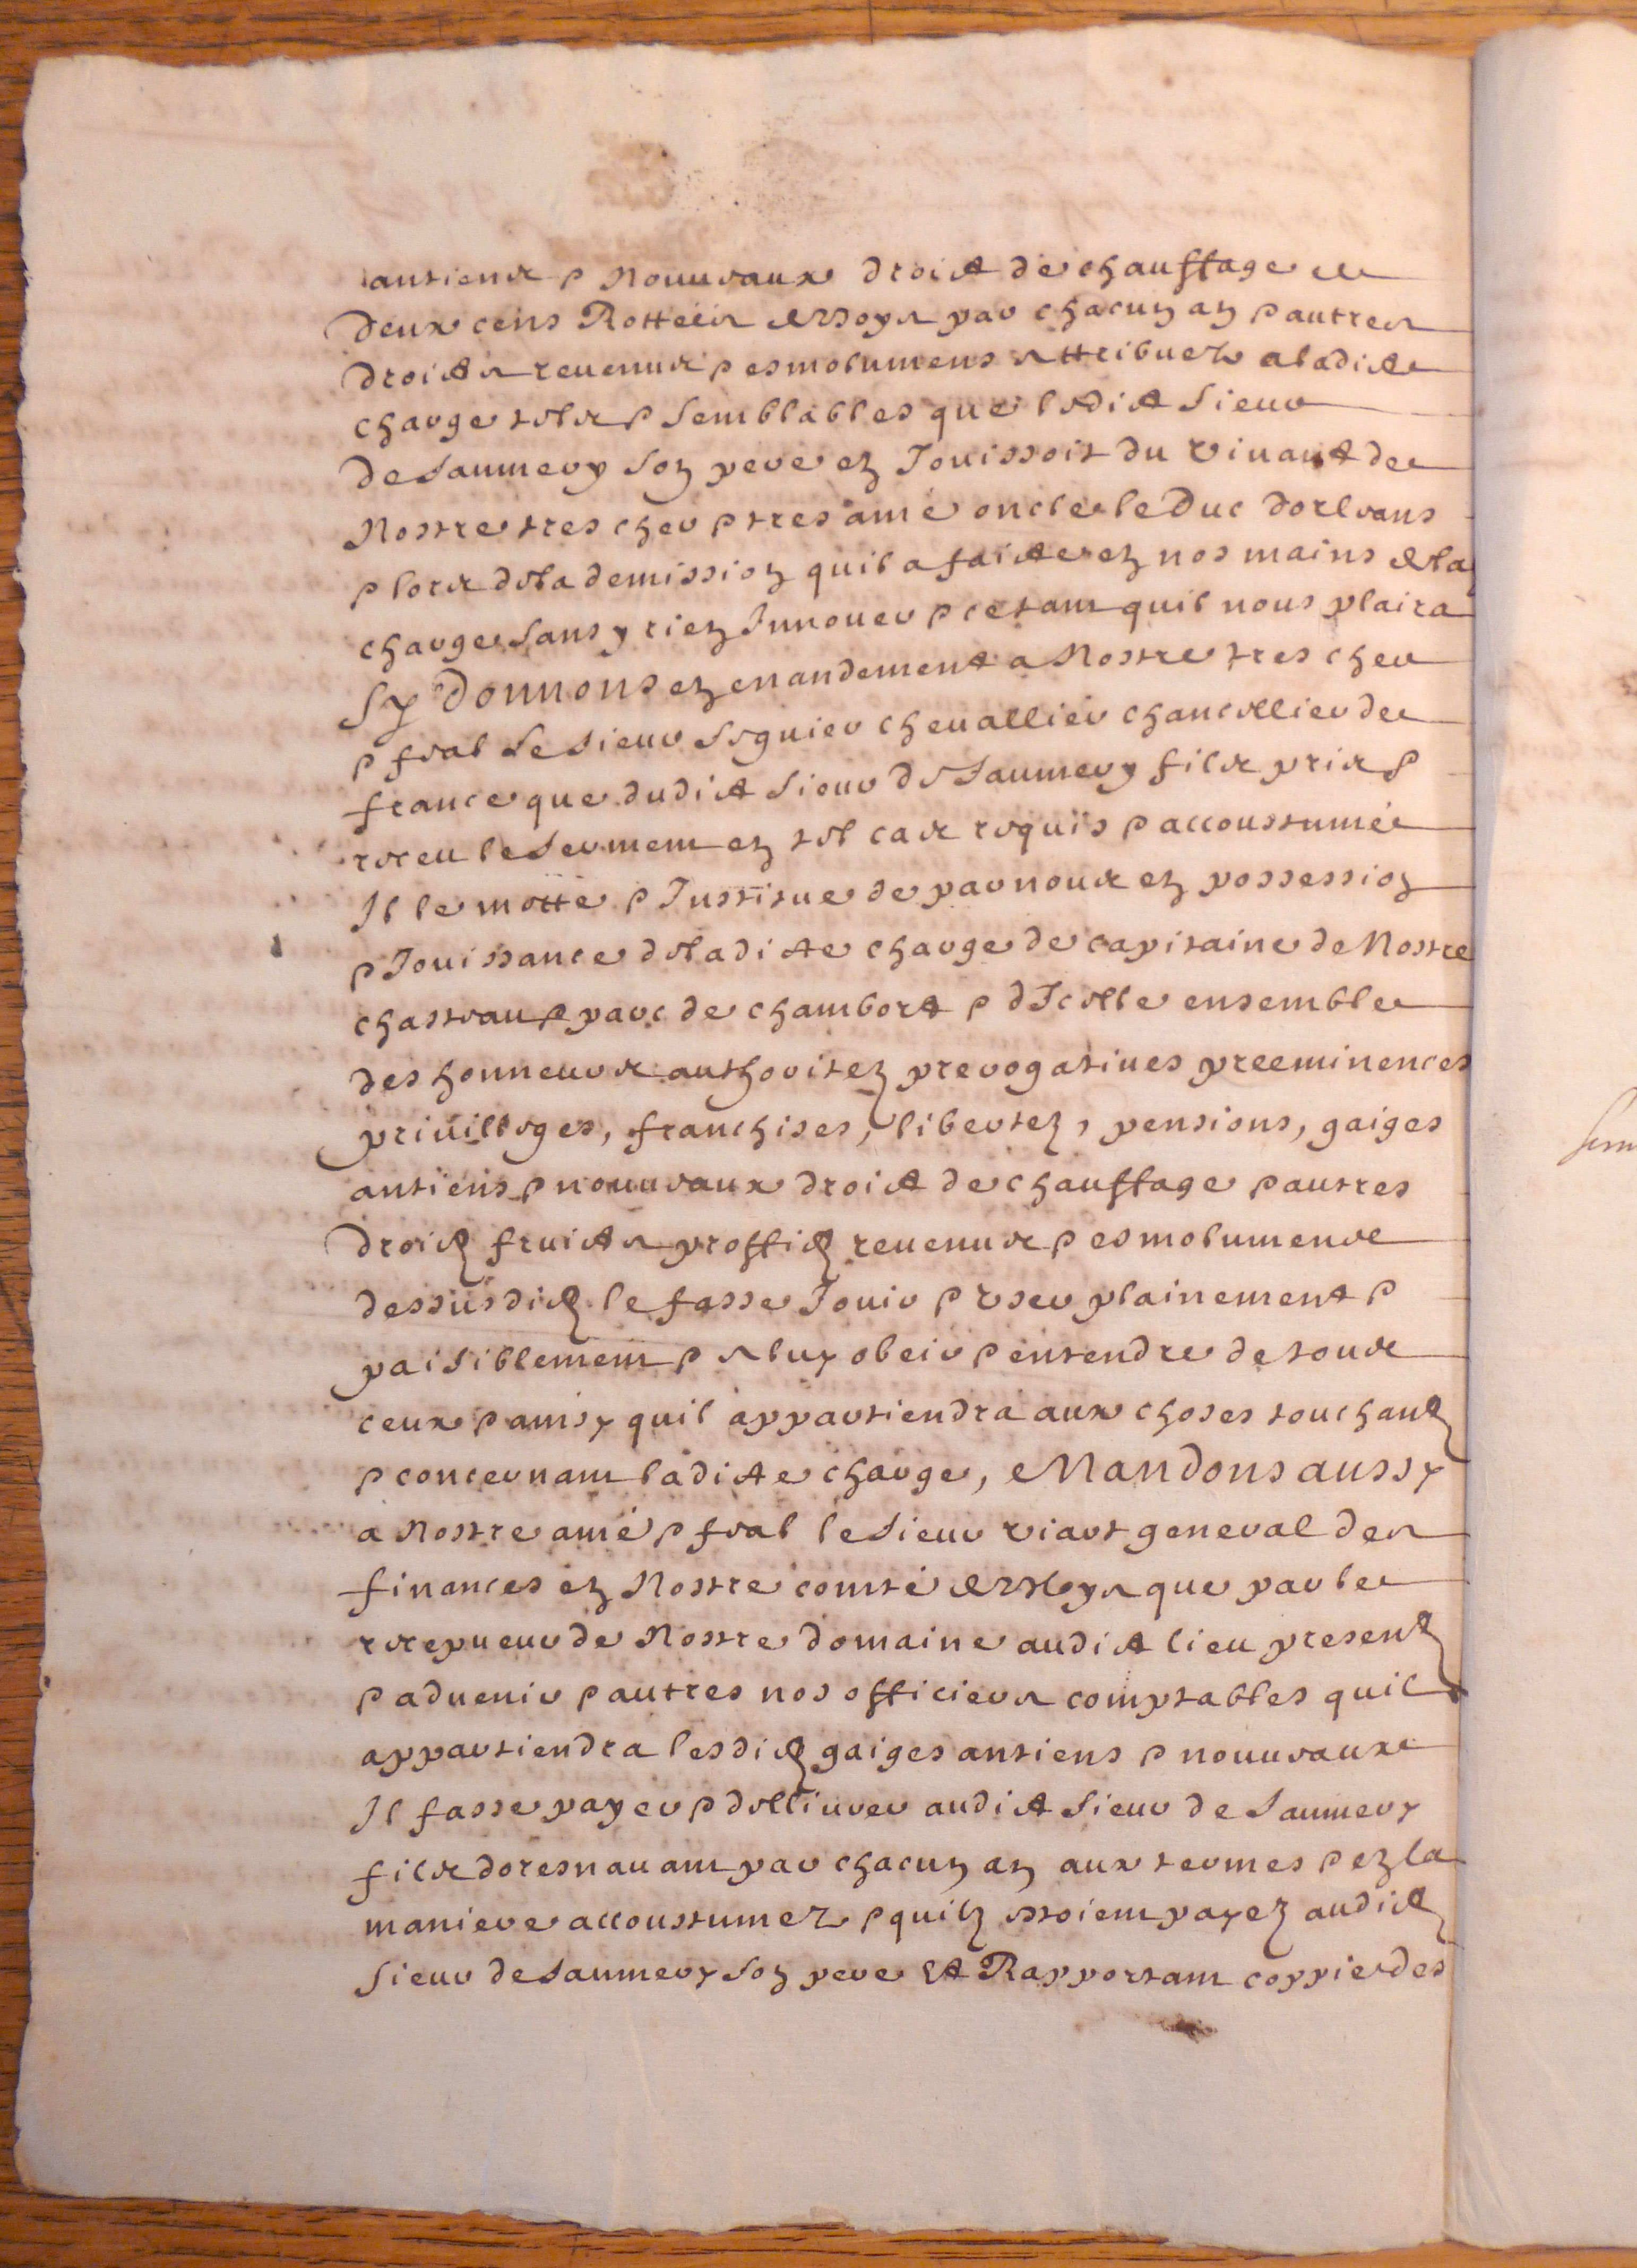 antiens & nouueaux droict de chauffage de
deux cens Rottées de boys par chacun an & autres
droicts reuenus & esmolumens attribuez a ladicte
charge telz & semblables que ledict Sieur
de Saumery son pere en Jouissoit du viuant de
Nostre tres cher & tres amé oncle le Duc dorleans
& lors de la demission quil a faicte en nos mains de la
charge sans y rien Innouer & ce tant quil nous plaira
Sy Donnons en mandement a Nostre tres cher
& feal le Sieur Seguier cheuallier chancellier de
france que dudict Sieur de Saumery filz pris &
receu le serment en tel cas requis & accoustumé
Il le mette & Institue de par nous en possession
& Jouissance de ladicte charge de capitaine de Nostre
chasteau & parc de chambort & dIcelle ensemble
des honneurs authoritez prerogatiues preeminences
priuilleges, franchises, libertez, pensions, gaiges
antiens & nouueaux droict de chauffage & autres
droictz fruicts proffictz reuenus & esmolumens
dessusdictz le fasse Jouir & vser plainement &
paisiblement & a luy obeir & entendre de tous
ceux & ainsy quil appartiendra aux choses touchantz
& concernant ladicte charge, Mandons aussy
a Nostre amé & feal le Sieur viart general des
finances en Nostre comté de Bloys que par le
recepueur de Nostre domaine audict lieu presentz
& aduenir & autres nos officiers comptables quil
appartiendra lesdictz gaiges antiens & nouueaux
Il fasse payer & delliurer audict Sieur de Saumery
filz doresnauant par chacun an aux termes & en la
maniere accoustumez & quilz estoient payez audict
Sieur de Saumery son pere Et Rapportant coppie des